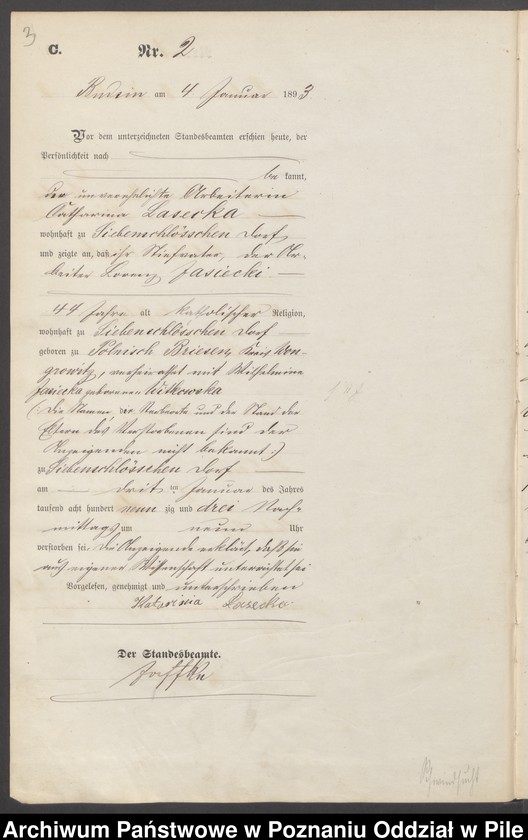 3
C.
Nr. 2
am 4 Januar 1893
Vor dem unterzeichneten Standesbeamten erschien heute, der
Persönlichkeit nach
be kannt,
die unverehelichte Arbeiterin
Catharina Lasecka
wohnhaft zu Siebenschlösschen Dorf
und zeigte an, daß ihr Stiefvater, der Ar-
beiter Lorenz Jasiecki
44 Jahre alt katholischer Religion,
wohnhaft zu Siebenschlösschen Dorf
geboren zu Polnisch Briesen, Kreis Won-
growitz, verheirathet mit Wilhelmine
Jasiecka geborenen Witkowska
(Die Namen, der Wohnorte und der Stand der
Eltern des Verstorbenen sind der
Anzeigenden nicht bekannt.)
zu Siebenschlösschen Dorf
am dritten Januar des Jahres
tausend acht hundert neun zig und drei Nach-
mittags um neun Uhr
verstorben sei. Die Anzeigende erklärt, daß sie
aus eigener Wissenschaft unterrichtet sei
Vorgelesen, genehmigt und unterschrieben
Katarina Lasecka
Der Standesbeamte.
Jaffke
Schwindsucht
Archiwum Państwowe w Poznaniu Oddział w Pile